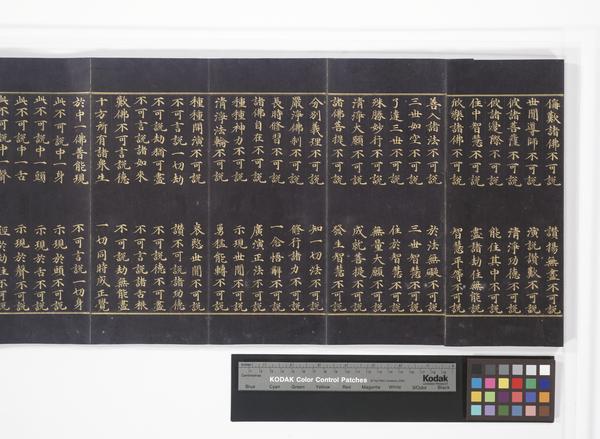 備歎諸佛不可說 讃揚無盡不可說
世間導師不可說 演說讃歎不可說
彼諸菩薩不可說 清淨功德不可說
彼諸邊際不可說 能住其中不可說
住中智慧不可說 盡諸劫住無能說
欣樂諸佛不可說 智慧平等不可說
善入諸法不可說 於法無礙不可說
三世如空不可說 三世智慧不可說
了達三世不可說 住於智慧不可說
殊勝妙行不可說 無量大願不可說
清淨大願不可說 成就菩提不可說
諸佛菩提不可說 發生智慧不可說
分別義理不可說 知一切法不可說
嚴淨佛刹不可說 修行諸力不可說
長時修習不可說 一念悟解不可說
諸佛自在不可說 廣演正法不可說
種種神力不可說 示現世間不可說
清淨法輪不可說 勇猛能轉不可說
種種開演不可說 哀愍世間不可說
不可言說一切劫 讃不可說諸功德
不可說劫猶可盡 不可說德不可盡
不可言說諸如來 不可言說諸舌根
歎佛不可言說德 不可說劫無能盡
十方所有諸衆生 一切同時成正覺
於中一佛普能現 不可言說一切身
此不可說中一身 示現於頭不可說
此不可說中一頭 示現於舌不可說
此不可說中一舌 示現於聲不可說
此不可說中一聲 經於劫住不可說
Centimetres
KODAK Color Control Patches
Kodak
Blue Cyan Green Yellow Red Magenta White 3/Color Black